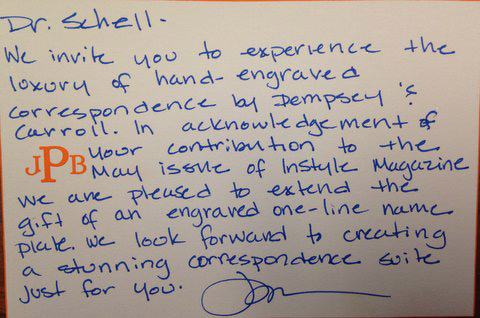 Dr. Schell-
We invite you to experience the
luxury of hand-engraved
correspondence by Dempsey &
Carroll. In acknowledgement of
JPB your contribution to the
May issue of InStyle Magazine
we are pleased to extend the
gift of an engraved one-line name
plate. We look forward to creating
a stunning correspondence suite
just for you.